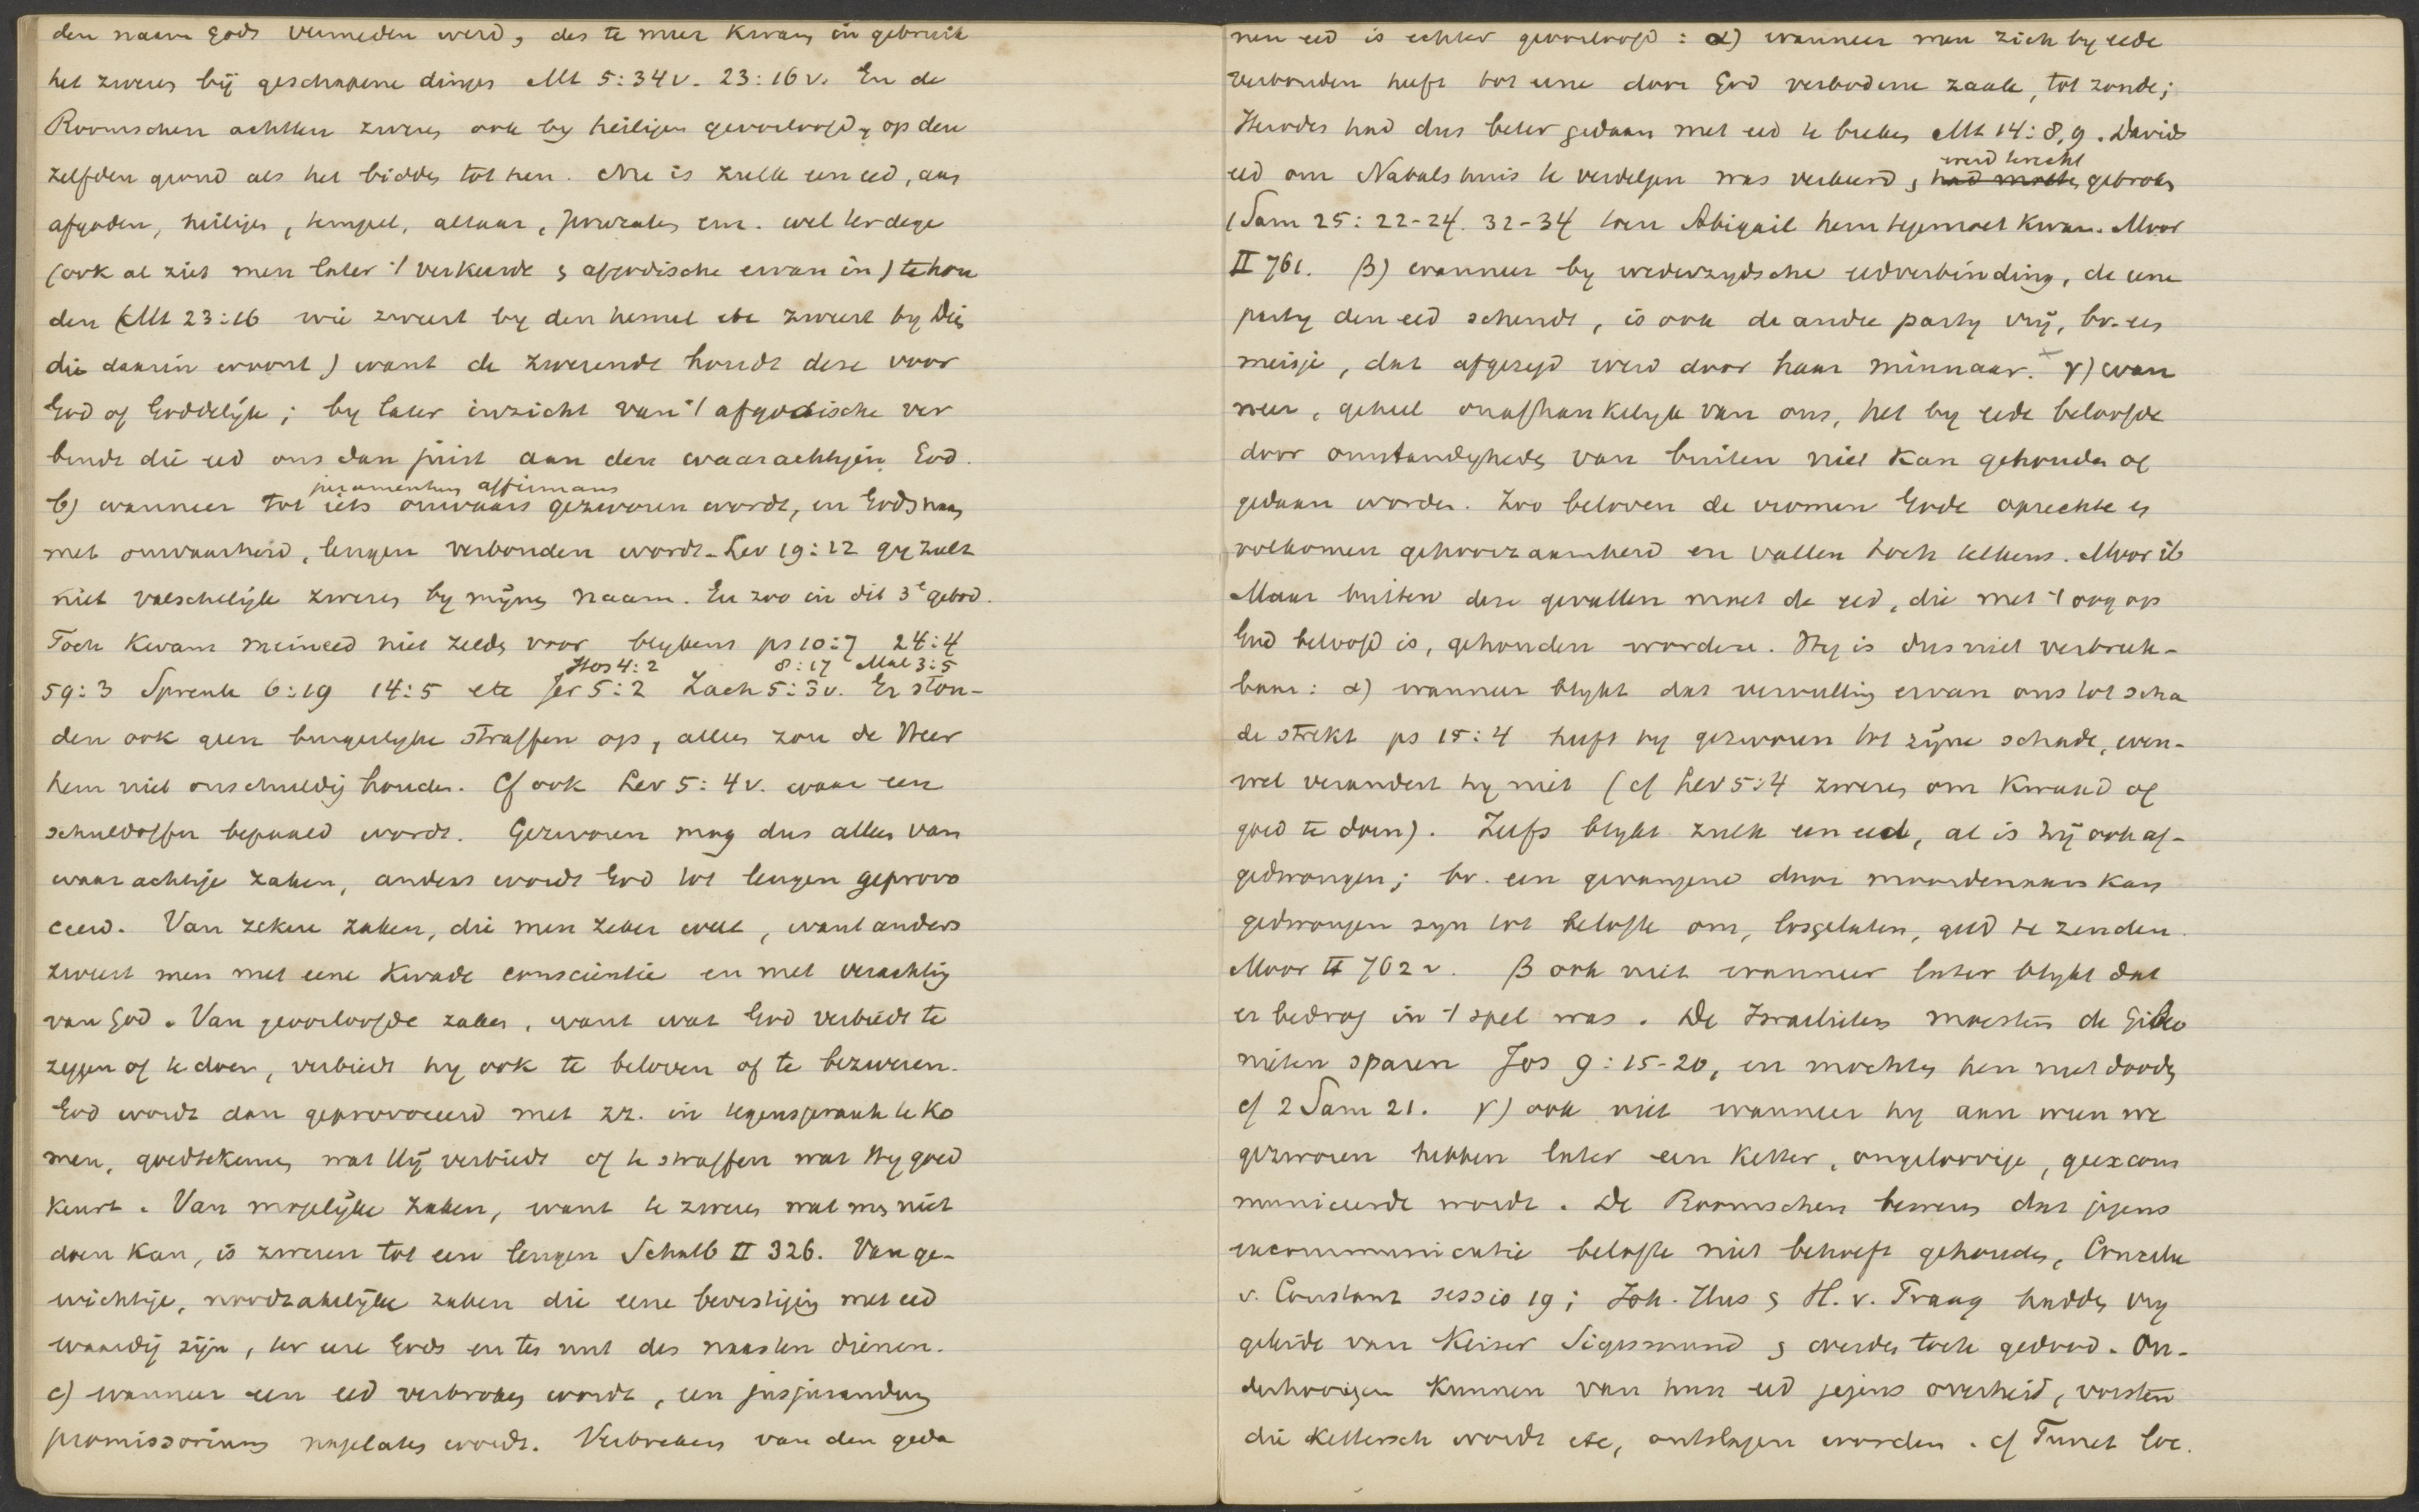 den naam Gods vermeden werd, des te meer kwam in gebruik
het zweren bij geschapene dingen Mt 5:34v. 23:16v. En de
Roomschen achtten zweren ook by heiligen geoorloofd, op den
zelfden grond als het bidden tot hen. Nu is zulk een eed, aan
afgoden, heiligen, tempel, altaar, enz. wel terdege
(ook al ziet men later 't verkeerde & afgodische ervan in) te hou
den (Mt 23:16 wie zweert by den hemel etc zweert by Dien
die daarin woont) want de zwerende houdt deze voor
God of Goddelijk; by later inzicht van 't afgodische ver
bindt die eed ons dan juist aan den waarachtigen God.
juramentum affirmans
b) wanneer tot iets onwaars gezworen wordt, en Gods naam
met onwaarheid, leugen verbonden wordt. Lev 19:12 gy zult
niet valschelijk zweren by mijnen naam. En zoo in dit 3e gebod.
Toch kwam meineed niet zelden voor blykens ps 10:7 24:4
Hos 4:2 8:17 Mal 3:5
59:3 Spreuk 6:19 14:5 etc Jer 5:2 Zach 5:3v. Er ston-
den ook geen burgerlyke straffen op, alleen zou de Heer
hem niet onschuldig houden. Cf ook Lev 5:4v. waar een
schuldoffer bepaald wordt. Gezworen mag dus alleen van
waarachtige zaken, anders wordt God tot leugen geprovo
ceerd. Van zekere zaken, die men zeker weet, want anders
zweert men met eene kwade conscientie en met verachting
van God. Van geoorloofde zaken, want wat God verbiedt te
zeggen of te doen, verbiedt hy ook te beloven of te bezweren.
God wordt dan geprovoceerd met zz. in tegenspraak te ko
men, goedtekeuren wat Hij verbiedt of te straffen wat Hy goed
keurt. Van mogelijke zaken, want te zweren wat men niet
doen kan, is zweren tot een leugen Schulb II 326. Van ge-
wichtige, noodzakelijke zaken die eene bevestiging met eed
waardig zijn, ter eere Gods en tes nut des naasten dienen.
c) wanneer een eed verbroken wordt, een jusjurandum
promissorium nagelaten wordt. Verbreken van den geda
nen eed is echter geoorloofd: α) wanneer men zich by eede
verbonden heeft tot eene door God verbodene zaak, tot zonde;
Herodes had dus beter gedaan met eed te breken Mt 14:8,9. Davids
werd terecht
eed om Nabals huis te verdelgen was verkeerd, & had moeten gebroken
1 Sam 25:22-24. 32-34 toen Abigail hem tegemoet kwam. Moor
II 761. β) wanneer by wederzydsche eedverbinding, de eene
party den eed schendt, is ook de andre party vrij, bv. een
meisje, dat afgezegd werd door haar minnaar. × γ) wan
neer, geheel onafhankelyk van ons, het by eede beloofde
door omstandigheden van buiten niet kan gehouden of
gedaan worden. Zoo beloven de vromen Gode oprechte en
volkomen gehoorzaamheid en vallen toch telkens. Moor ib
Maar buiten deze gevallen moet de eed, die met 't oog op
God beloofd is, gehouden worden. Hy is dus niet verbreek-
baar: α) wanneer blykt dat vervulling ervan ons tot scha
de strekt ps 15:4 heeft hy gezworen tot zijne schade, even-
wel verandert hy niet (cf Lev 5:4 zweren om kwaad of
goed te doen). Zelfs blykt zulk een eed, al is hij ook af-
gedwongen; bv. een gevangene door moordenaars kan
gedwongen zyn tot belofte om, losgelaten, geld te zenden
Moor II 762v. β ook niet wanneer later blykt dat
er bedrog in 't spel was. De Israelieten moesten de Gibeo
nieten sparen Jos 9:15-20, en mochten hen niet dooden
cf 2 Sam 21. γ) ook niet wanneer hy aan wien we
gezworen hebben later een ketter, ongeloovige, geexcom
municeerde wordt. De Roomschen beweren dat jegens
excommunicatie belofte niet behoeft gehouden, Concilie
v. Constanz sessio 19; Joh. Hus & H. v. Praag hadden vry
geleide van Keizer Sigismund & werden toch gedood. On-
derhoorigen kunnen van hun eed jegens overheid, vorsten
die kettersch wordt etc, ontslagen worden. cf Turret loc.